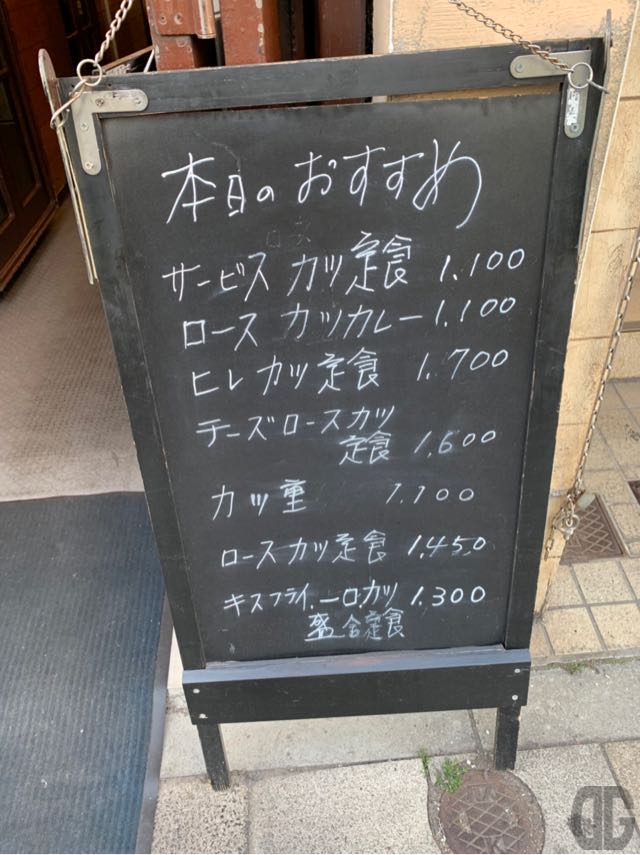 本日のおすすめ
サービスカツ定食 1,100
ロースカツカレー 1,100
ヒレカツ定食 1,700
チーズロースカツ
定食 1,600
カツ重 1,100
ロースカツ定食 1,450
キスフライ、一口カツ 1,300
盛合定食